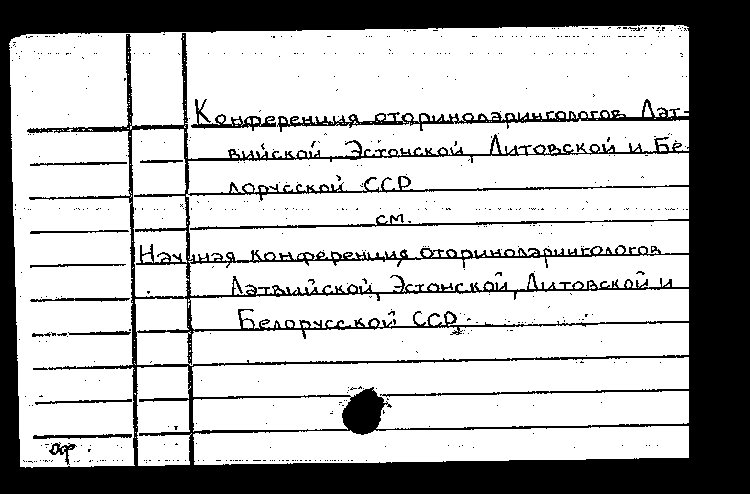 Конференция оториноларингологов Лат-
вийской, Эстонской, Литовской и Бе-
лорусской ССР
см.
Научная конференция оториноларингологов
Латвийской, Эстонской, Литовской и
Белорусской ССР.